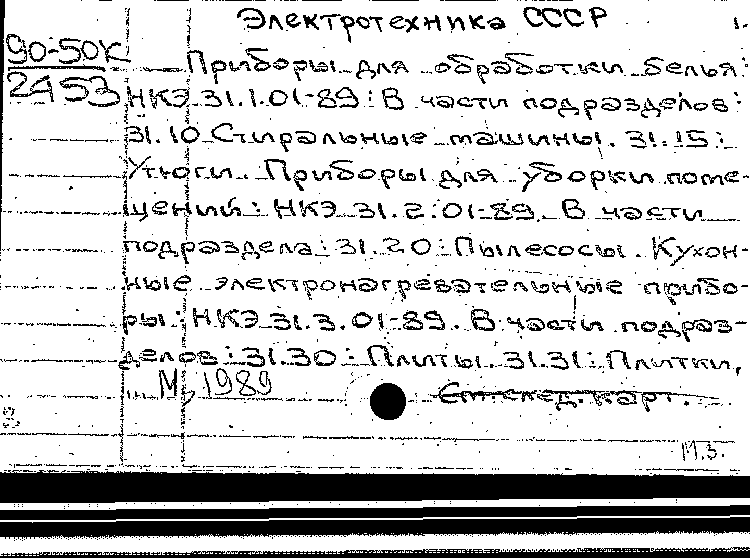 Электротехника СССР 1.
90-50К
2453
Приборы для обработки белья:
НКЭ 31.1.01-89: В части подразделов:
31.10 Стиральные машины. 31.15:
Утюги. Приборы для уборки поме-
щений: НКЭ 31.2.01-89. В части
подраздела: 31.20: Пылесосы. Кухон-
ные электронагревательные прибо-
ры: НКЭ 31.3.01-89. В части подраз-
делов: 31.30: Плиты 31.31: Плитки,
... М, 1989
См. след. карт.
М.З.